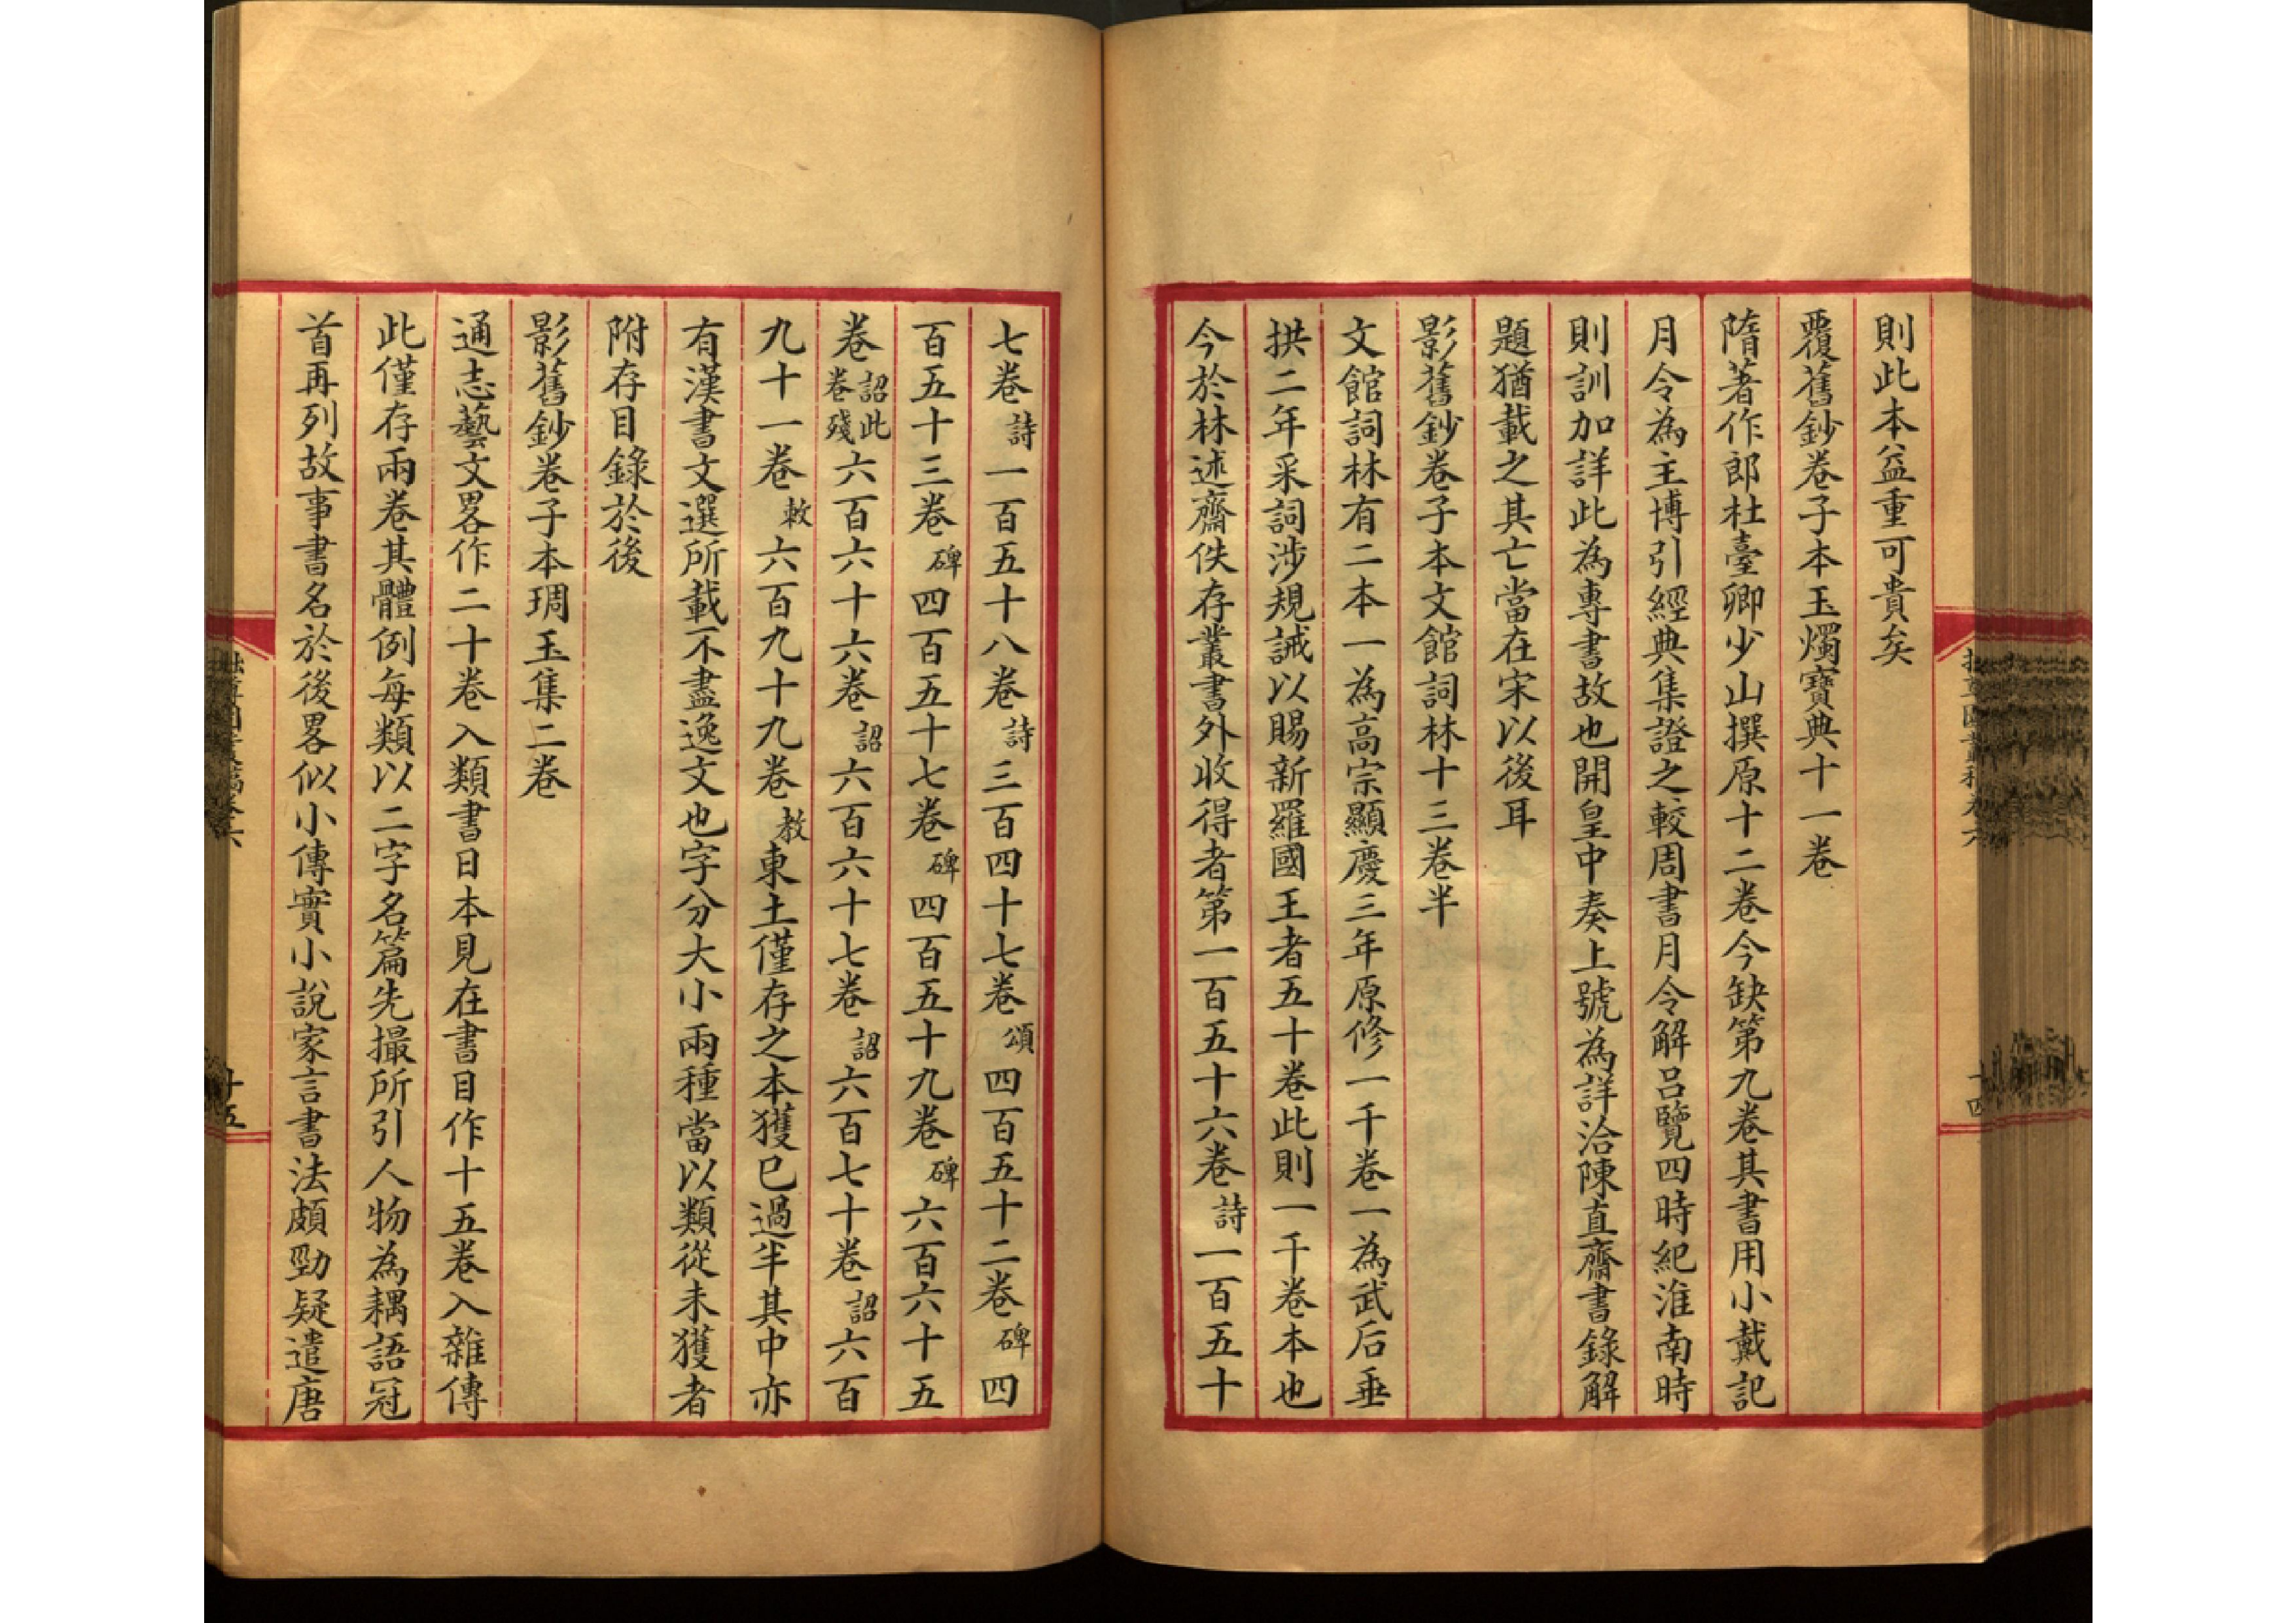 則此本益重可貴矣
覆舊鈔卷子本玉燭寶典十一卷
隋著作郎杜臺卿少山撰原十二卷今缺第九卷其書用小戴記
月令為主博引經典集證之較周書月令解呂覽四時紀淮南時
則訓加詳此為專書故也開皇中奏上號為詳洽陳直齋書錄解
題猶載之其亡當在宋以後耳
影舊鈔卷子本文館詞林十三卷半
文館詞林有二本一為高宗顯慶三年原修一千卷一為武后垂
拱二年采詞涉規誡以賜新羅國王者五十卷此則一千卷本也
今於林述齋佚存叢書外收得者第一百五十六卷詩一百五十
七卷詩一百五十八卷詩三百四十七卷頌四百五十二卷碑四
百五十三卷碑四百五十七卷碑四百五十九卷碑六百六十五
卷詔此卷殘六百六十六卷詔六百六十七卷詔六百七十卷詔六百
九十一卷敕六百九十九卷教東土僅存之本獲已過半其中亦
有漢書文選所載不盡逸文也字分大小兩種當以類從未獲者
附存目錄於後
影舊鈔卷子本琱玉集二卷
通志藝文畧作二十卷入類書日本見在書目作十五卷入雜傳
此僅存兩卷其體例每類以二字名篇先撮所引人物為耦語冠
首再列故事書名於後畧似小傳實小說家言書法頗勁疑遣唐
十五